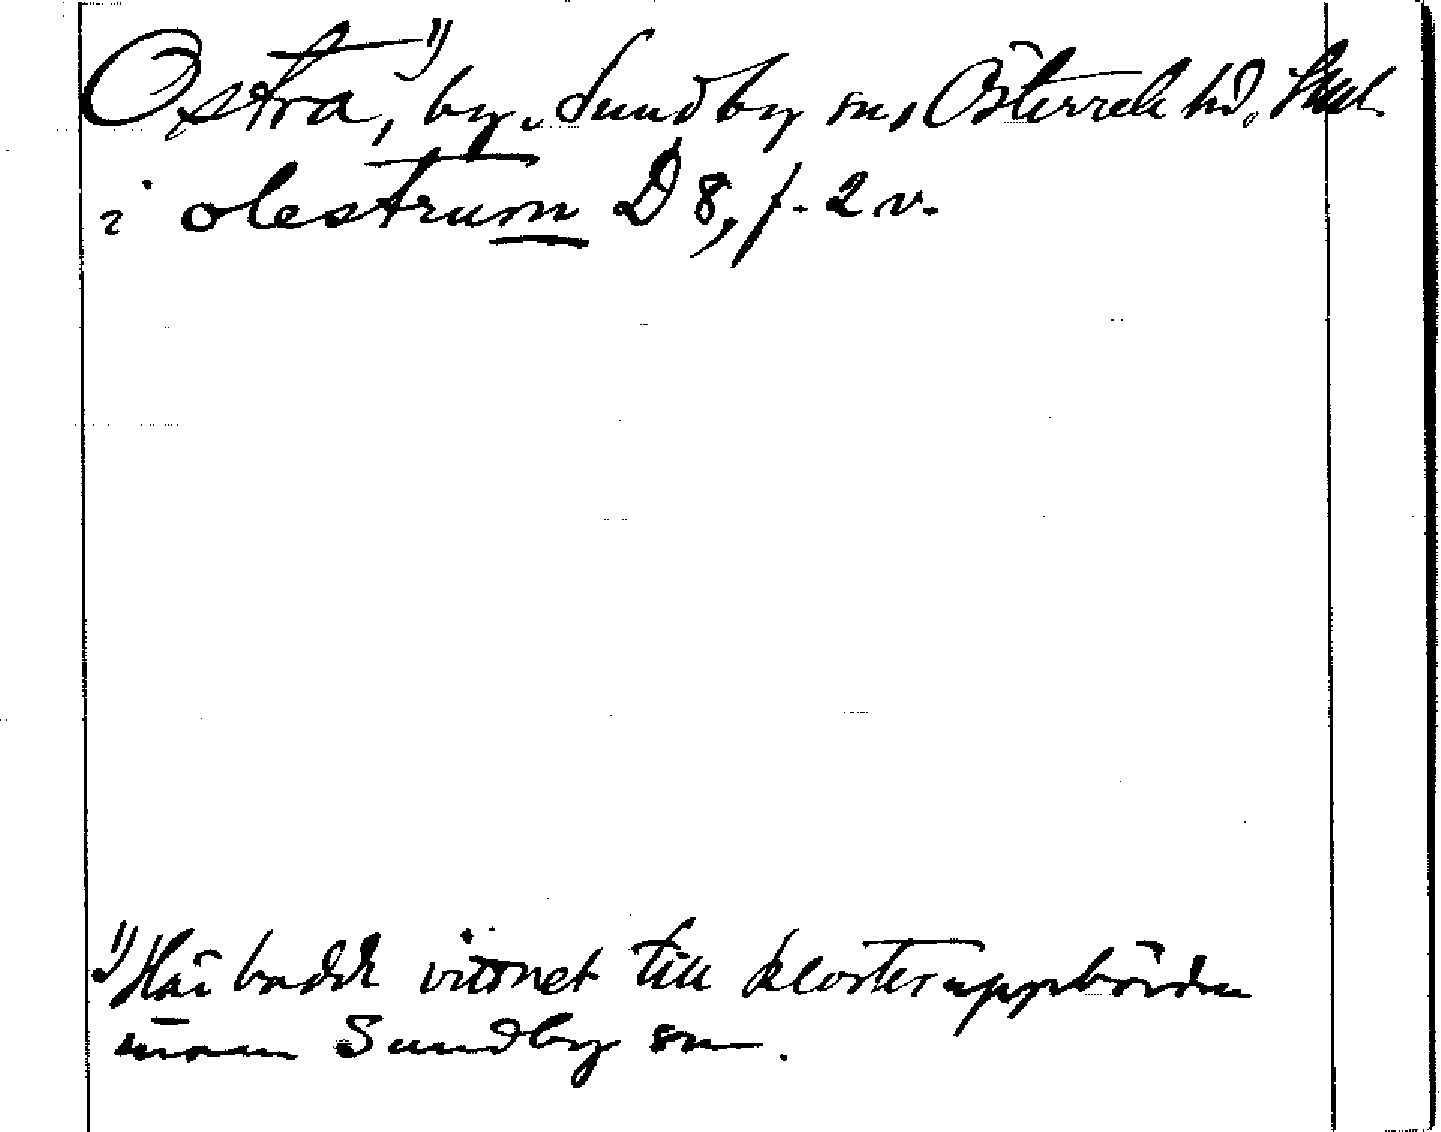 Östra,¹⁾ by, Sundby sn, Österrek hd,
i olestrum D 8, f. 2 v.
¹⁾ Här bodde vittnet till klosteruppbörden
inom Sundby sn.